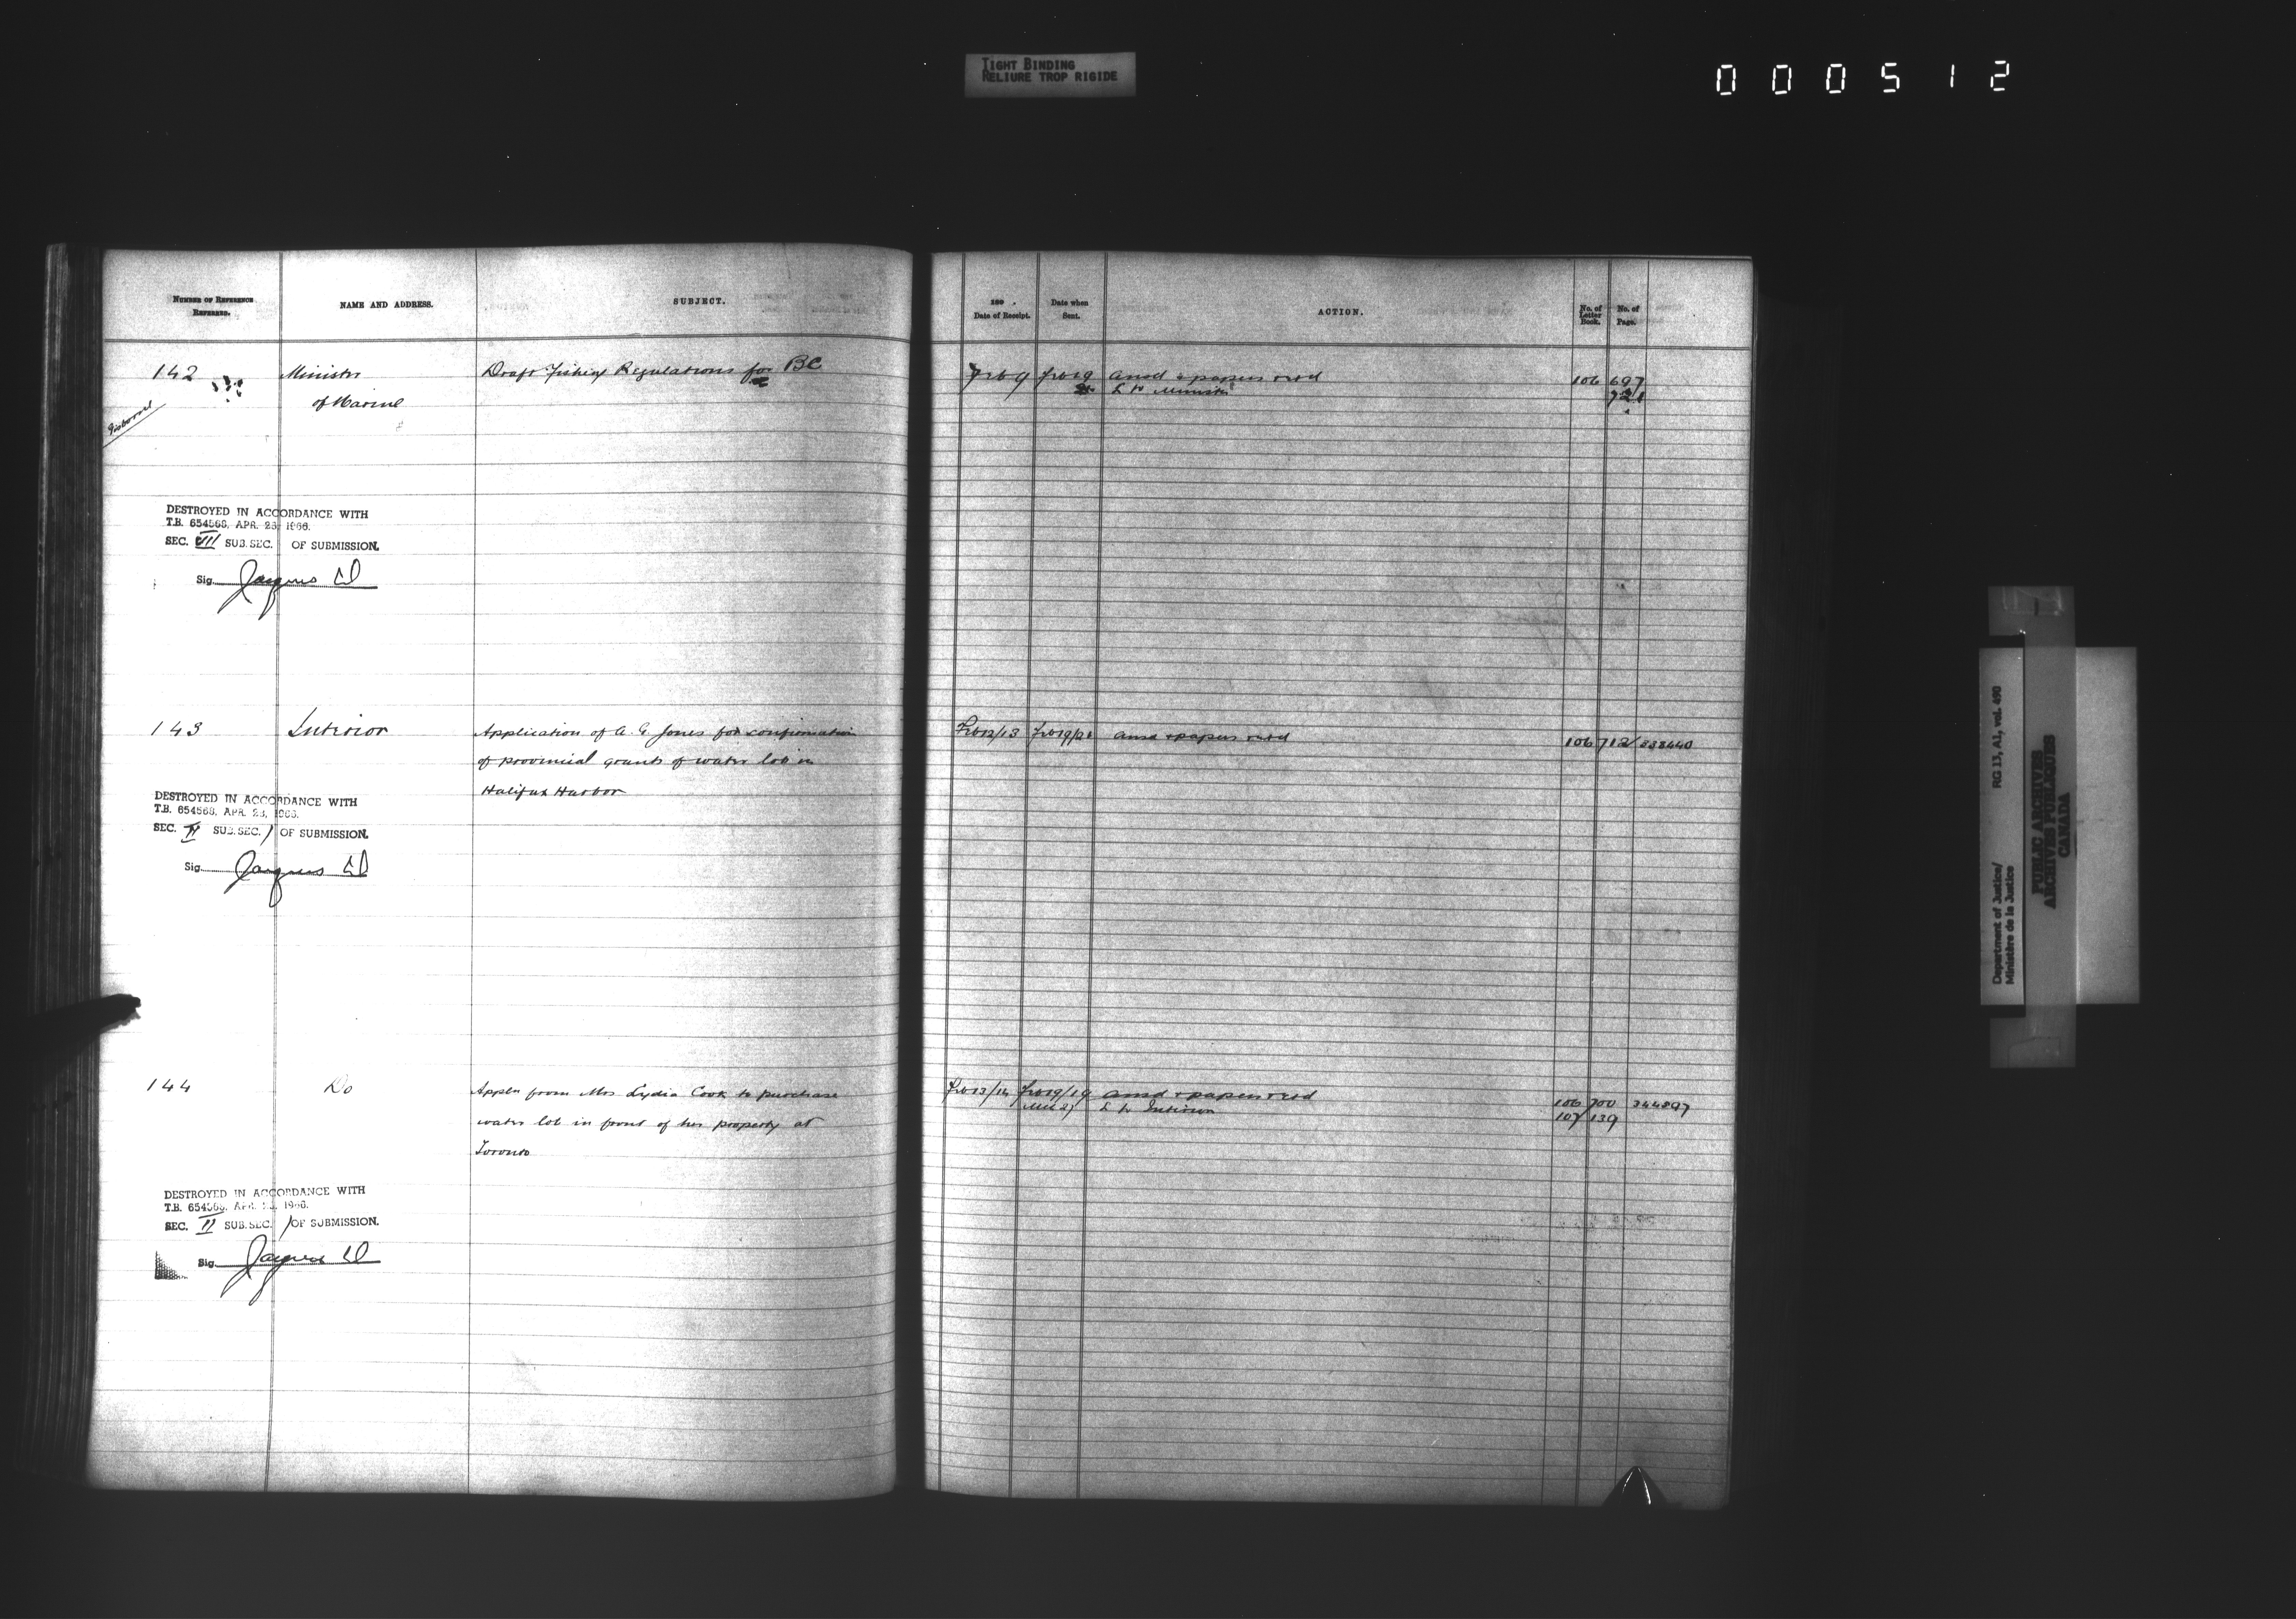 TIGHT BINDING
RELIURE TROP RIGIDE
000512
NUMBER OF REFERENCE
REFERRED.
NAME AND ADDRESS.
SUBJECT.
189 .
Date of Receipt.
Date when
Sent.
ACTION.
No. of
Letter
Book.
No. of
Page.
142 Minister Draft Fishery Regulations for BC Feb 9 Feb 19 Ansd & papers retd 106 697
of Marine L to Minister 721
DESTROYED IN ACCORDANCE WITH
T.B. 654568, APR. 23, 1966.
SEC. VII SUB.SEC. OF SUBMISSION.
Sig. Jacques
143 Interior Application of A. G. Jones for confirmation Feb 12/13 Feb 19/21 Ansd & papers retd 106 712 / 338440
of provincial grants of water lots in
Halifax Harbor
DESTROYED IN ACCORDANCE WITH
T.B. 654568, APR. 23, 1966.
SEC. II SUB.SEC. 1 OF SUBMISSION.
Sig. Jacques
144 Do Appln from Mrs Lydia Cook to purchase Feb 13/14 Feb 19/19 Ansd & papers retd 106 700 344897
water lot in front of her property at L to Interior 107 139
Toronto
DESTROYED IN ACCORDANCE WITH
T.B. 654568, APR. 23, 1966.
SEC. II SUB.SEC. 1 OF SUBMISSION.
Sig. Jacques
Department of Justice/
Ministère de la Justice
RG 13, A1, vol. 490
PUBLIC ARCHIVES
ARCHIVES PUBLIQUES
CANADA